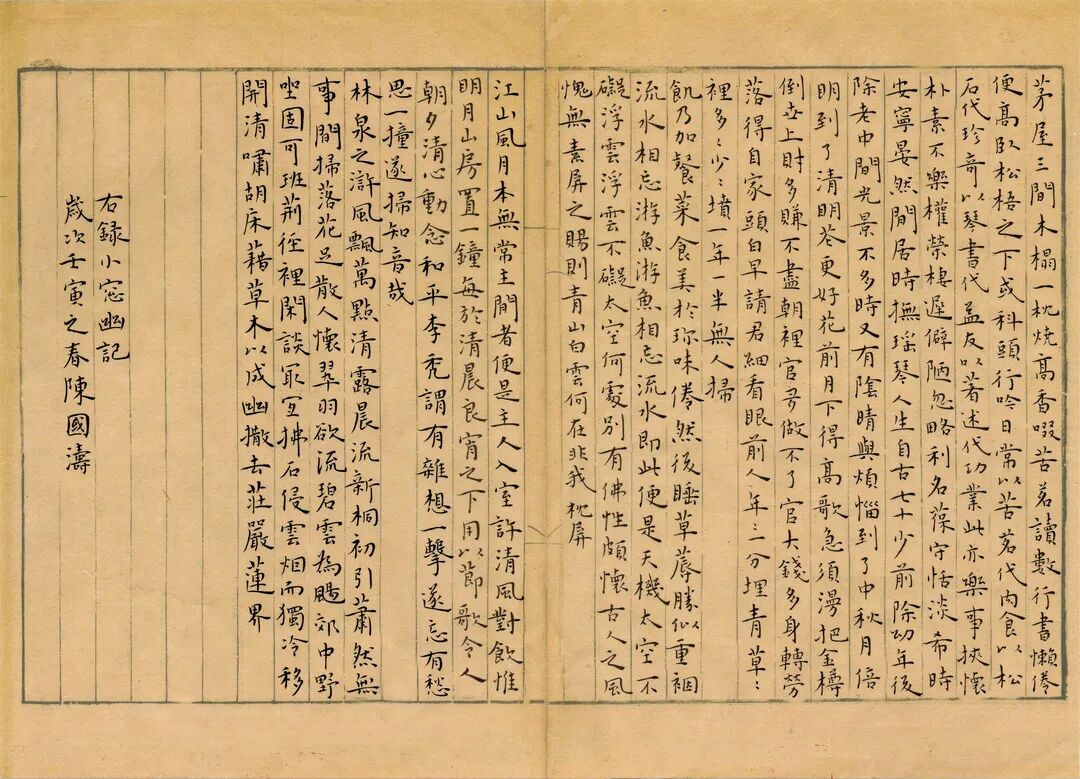 茅屋三間木榻一枕燒高香啜苦茗讀數行書懶倦
便高臥松梧之下或科頭行吟日常以苦茗代肉食以松
石代珍奇以琴書代益友以著述代功業此亦樂事挾懷
朴素不樂權榮棲遲僻陋忽略利名葆守恬淡希時
安寧晏然閒居時撫瑶琴人生自古七十少前除幼年後
除老中間光景不多時又有陰晴與煩惱到了中秋月倍
明到了清明花更好花前月下得高歌急須漫把金樽
倒世上財多賺不盡朝裡官多做不了官大錢多身轉勞
落得自家頭白早請君細看眼前人年二分埋青草〻
裡多〻少〻墳一年一半無人掃
飢乃加餐菜食美於珍味倦然後睡草蓐勝似重裀
流水相忘游魚游魚相忘流水即此便是天機太空不
礙浮雲浮雲不礙太空何處別有佛性頗懷古人之風
愧無素屏之賜則青山白雲何在非我枕屏
江山風月本無常主閒者便是主人入室許清風對飲惟
明月山房置一鐘每於清晨良宵之下用以節歌令人
朝夕清心動念和平李禿謂有雜想一擊遂忘有愁
思一撞遂掃知音哉
林泉之滸風飄萬點清露晨流新桐初引蕭然無
事閒掃落花足散人懷翠羽欲流碧雲為颺郊中野
坐固可班荊徑裡閑談最宜拂石侵雲烟而獨冷移
開清嘯胡床藉草木以成幽撒去莊嚴蓮界
右錄小窓幽記
歲次壬寅之春陳國濤